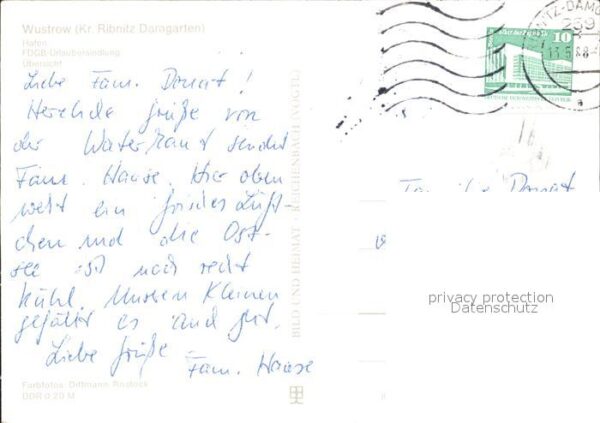 Wustrow (Kr. Ribnitz Damgarten)
Hafen
FDGB-Urlaubersiedlung
Übersicht
Liebe Fam. Donat!
Herzliche Grüße von
der Waterkant sendet
Fam. Hause. Hier oben
weht ein frisches Lüft-
chen und die Ost-
see ist noch recht
kühl. Unseren Kleinen
gefällt es auch gut.
Liebe Grüße
Fam. Hause
Farbfotos: Dittmann, Rostock
DDR 0,20 M
BILD UND HEIMAT REICHENBACH (VOGTL)
10
259
13.5.88
Familie Donat
privacy protection
Datenschutz